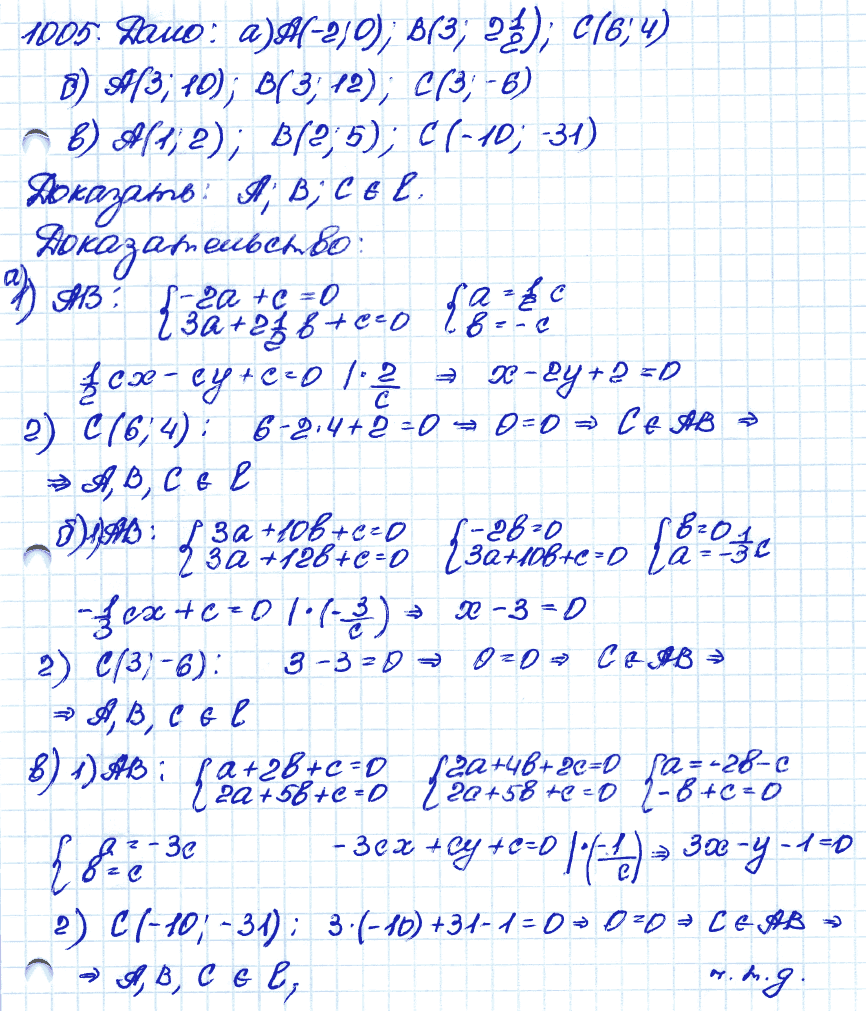 1005. Дано: а) A(-2; 0); B(3; 2 1/2); C(6; 4)
б) A(3; 10); B(3; 12); C(3; -6)
в) A(1; 2); B(2; 5); C(-10; -31)
Доказать: A; B; C ∈ l.
Доказательство:
а) 1) AB: { -2a + c = 0 { a = 1/2 c
3a + 2 1/2 b + c = 0 b = - c
1/2 cx - cy + c = 0 | · 2/c ⇒ x - 2y + 2 = 0
2) C(6; 4): 6 - 2·4 + 2 = 0 ⇒ 0 = 0 ⇒ C ∈ AB ⇒
⇒ A, B, C ∈ l
б) 1) AB: { 3a + 10b + c = 0 { -2b = 0 { b = 0
3a + 12b + c = 0 3a + 10b + c = 0 a = - 1/3 c
- 1/3 cx + c = 0 | · (- 3/c) ⇒ x - 3 = 0
2) C(3; -6): 3 - 3 = 0 ⇒ 0 = 0 ⇒ C ∈ AB ⇒
⇒ A, B, C ∈ l
в) 1) AB: { a + 2b + c = 0 { 2a + 4b + 2c = 0 { a = -2b - c
2a + 5b + c = 0 2a + 5b + c = 0 -b + c = 0
{ a = -3c -3cx + cy + c = 0 | · (-1/c) ⇒ 3x - y - 1 = 0
b = c
2) C(-10; -31): 3·(-10) + 31 - 1 = 0 ⇒ 0 = 0 ⇒ C ∈ AB ⇒
⇒ A, B, C ∈ l, ч.т.д.